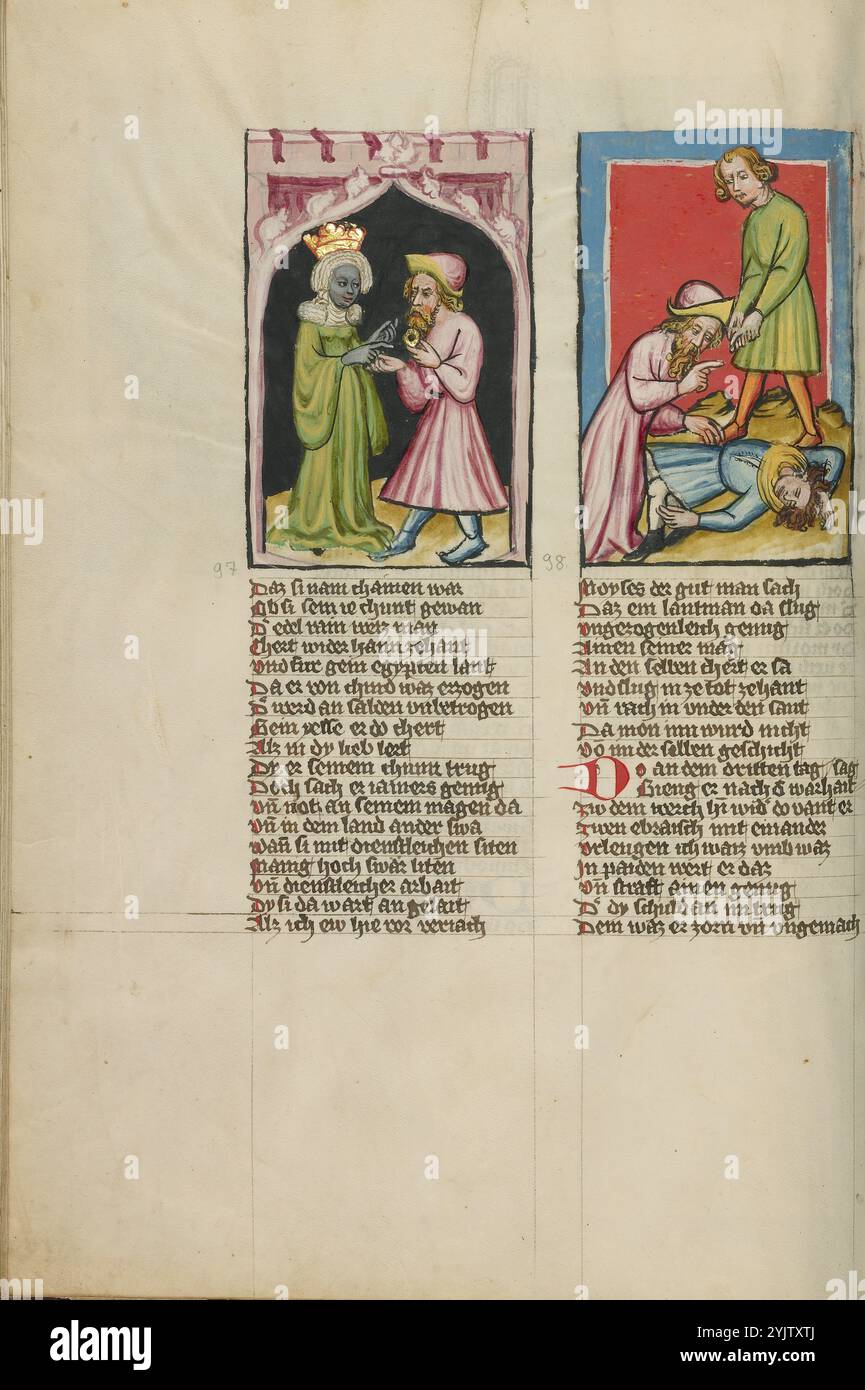 97
Daz si nam chainen war
Ob si sein ie chunt gewan
D' edel rain weiz man
Chert wider haim zehant
Vnd fur gein egypten lant
Da er von chind waz erzogen
D' werd an salden vnbetrogen
Gein yesse er do chert
Alz in dy lieb lert
Dy er seinem chunn trug
Doch sach er iamers genug
Vn̄ not an seinem magen da
Vn̄ in dem land ander swa
Wan̄ si mit dienstleichen siten
Manig hoch swar liten
Vn̄ dienstleicher arbait
Dy si da wart an gelait
Alz ich ew hie vor veriach
98
Moyses der gut man sach
Daz ein lantman da slug
Vngezogenleich genug
Ainen seiner mag
An den selben chert er sa
Vnd slug in ze tot zehant
Vn̄ rach in vnder den sant
Da mon inn wurd nicht
Vo im der selben geschicht
Do an dem dritten tag, sag
Gieng er nach d' warhait
Zw dem werch hi wid' do vant er
Zwen ebraisch mit einander
Vrleugen ich waiz vmb waz
In paiden wert er daz
Vn̄ straft ainen genug
D' dy schuld an im trug
Dem waz er zorn vn̄ vngemach
alamy
a
alamy
Image ID: 2YJTXTJ
www.alamy.com